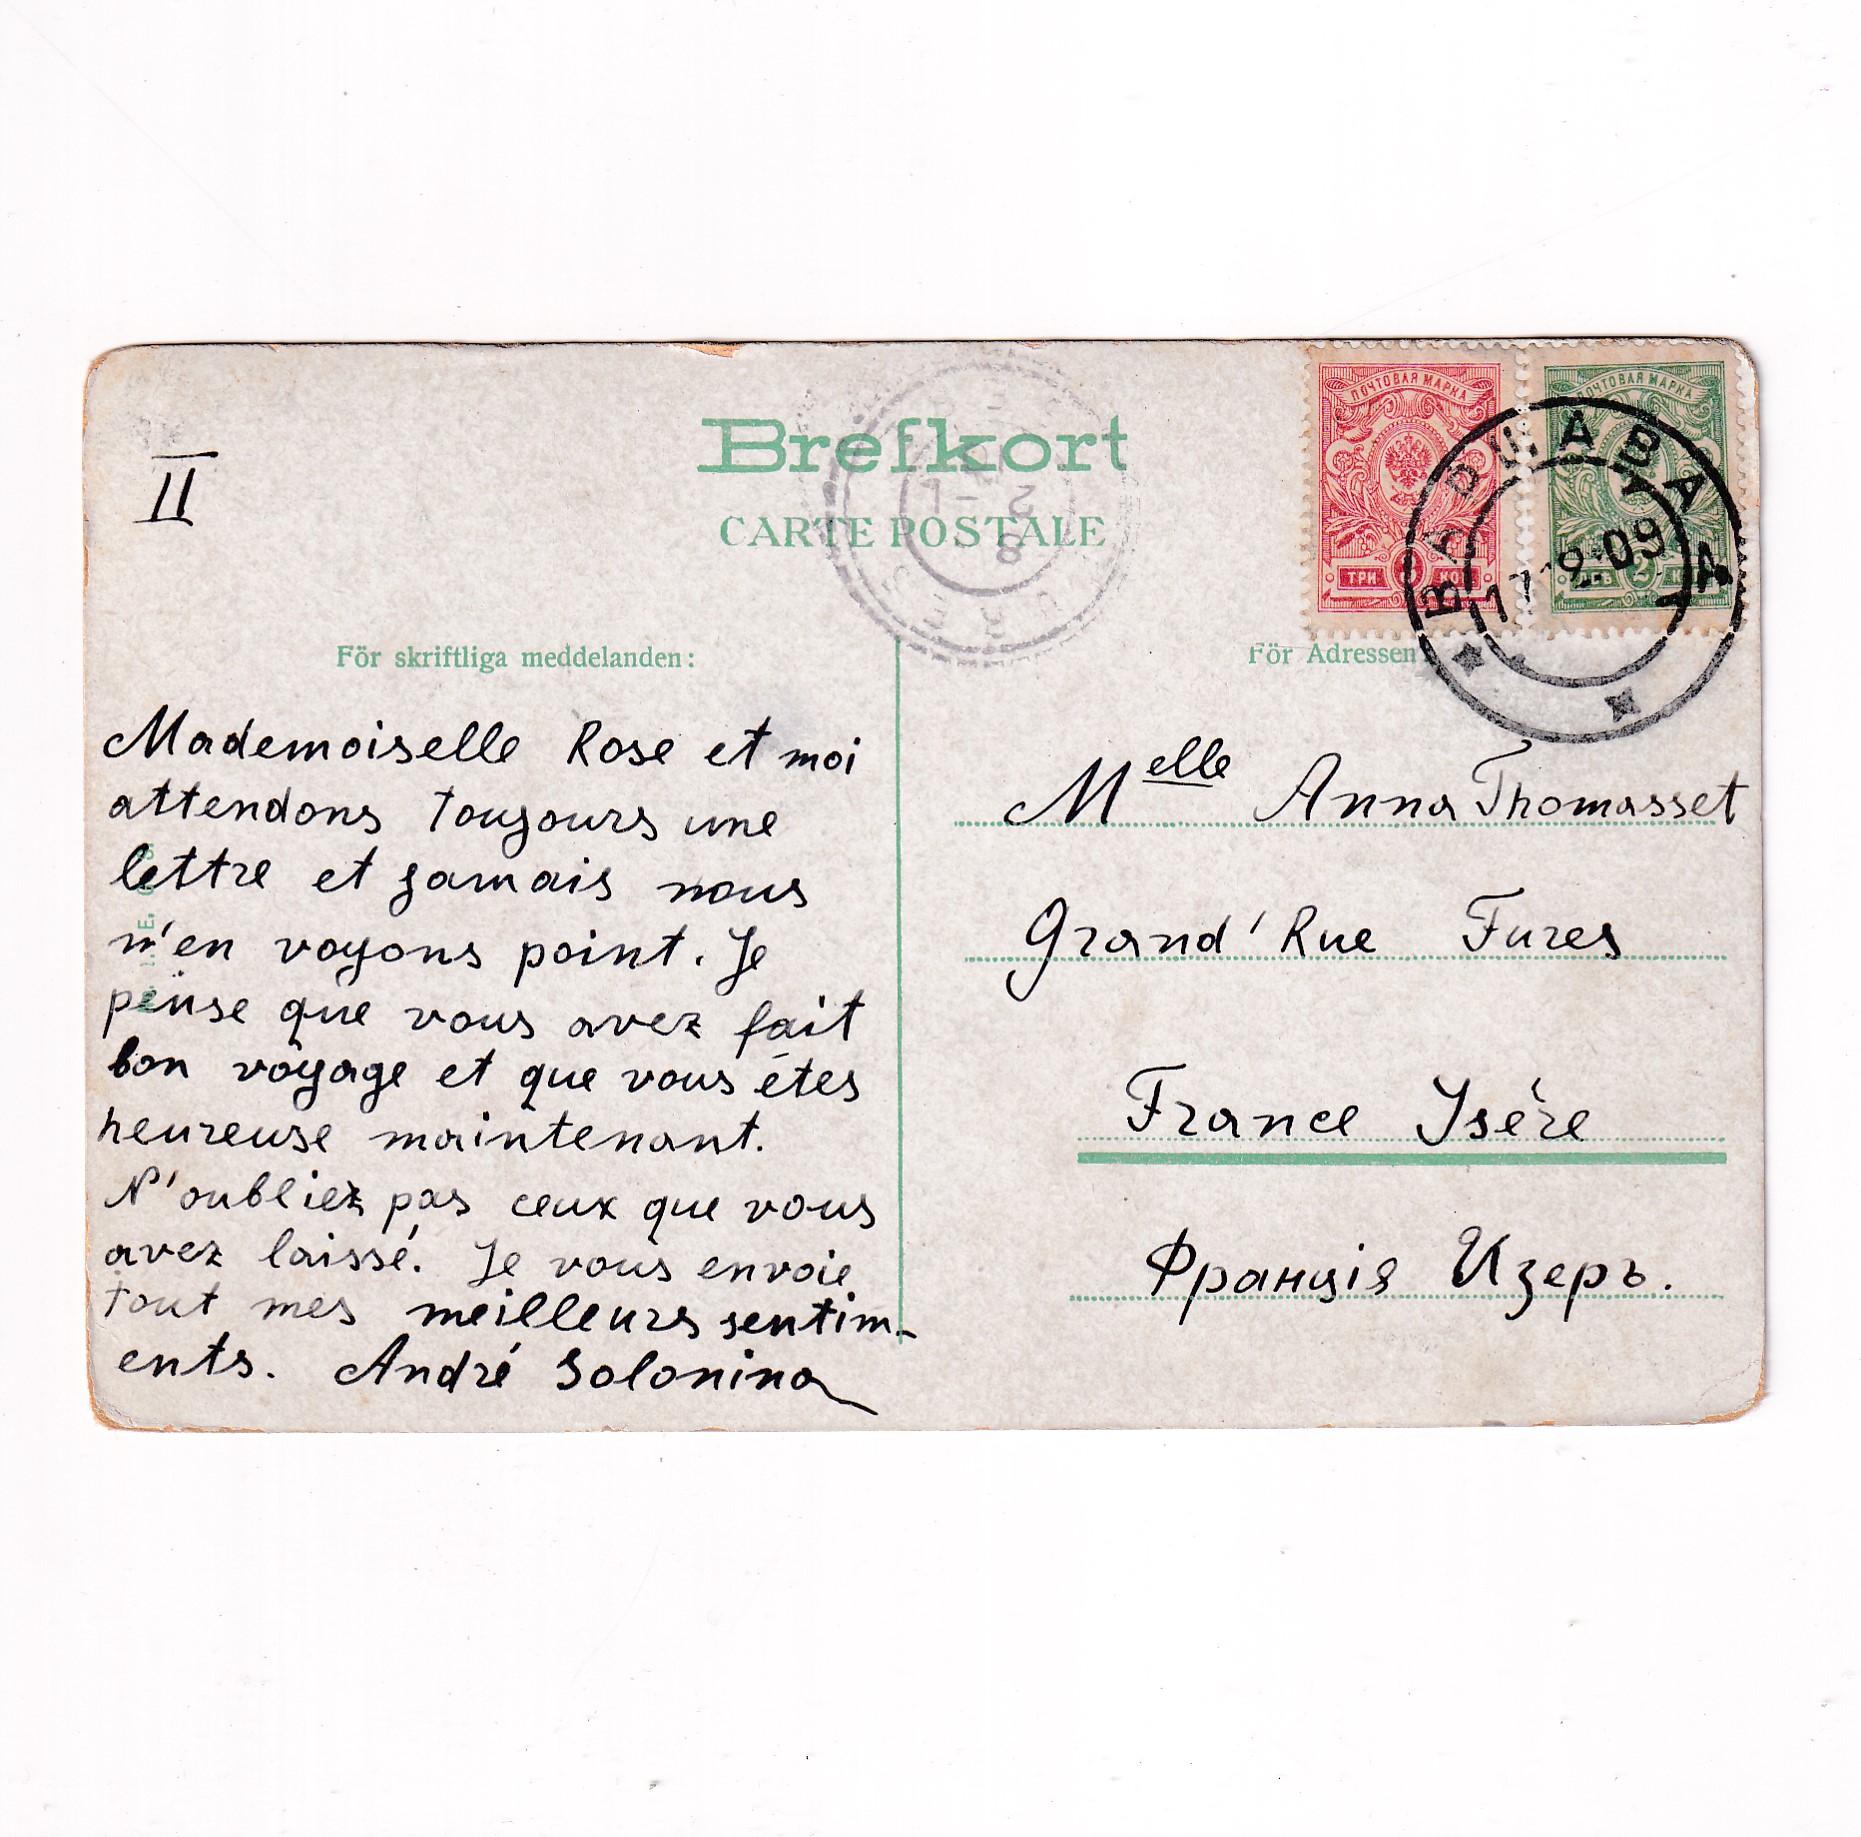 II
Brefkort
CARTE POSTALE
För skriftliga meddelanden:
För Adressen
ПОЧТОВАЯ МАРКА
ТРИ 3 КОП
ПОЧТОВАЯ МАРКА
2
ВАРШАВА
Mademoiselle Rose et moi
attendons toujours une
lettre et jamais nous
n'en voyons point. Je
pense que vous avez fait
bon voyage et que vous étes
heureuse maintenant.
N'oubliez pas ceux que vous
avez laissé. Je vous envoie
tout mes meilleurs sentim-
ents. André Solonina
Melle Anna Thomasset
Grand' Rue Fures
France Isére
Франція Изеръ.